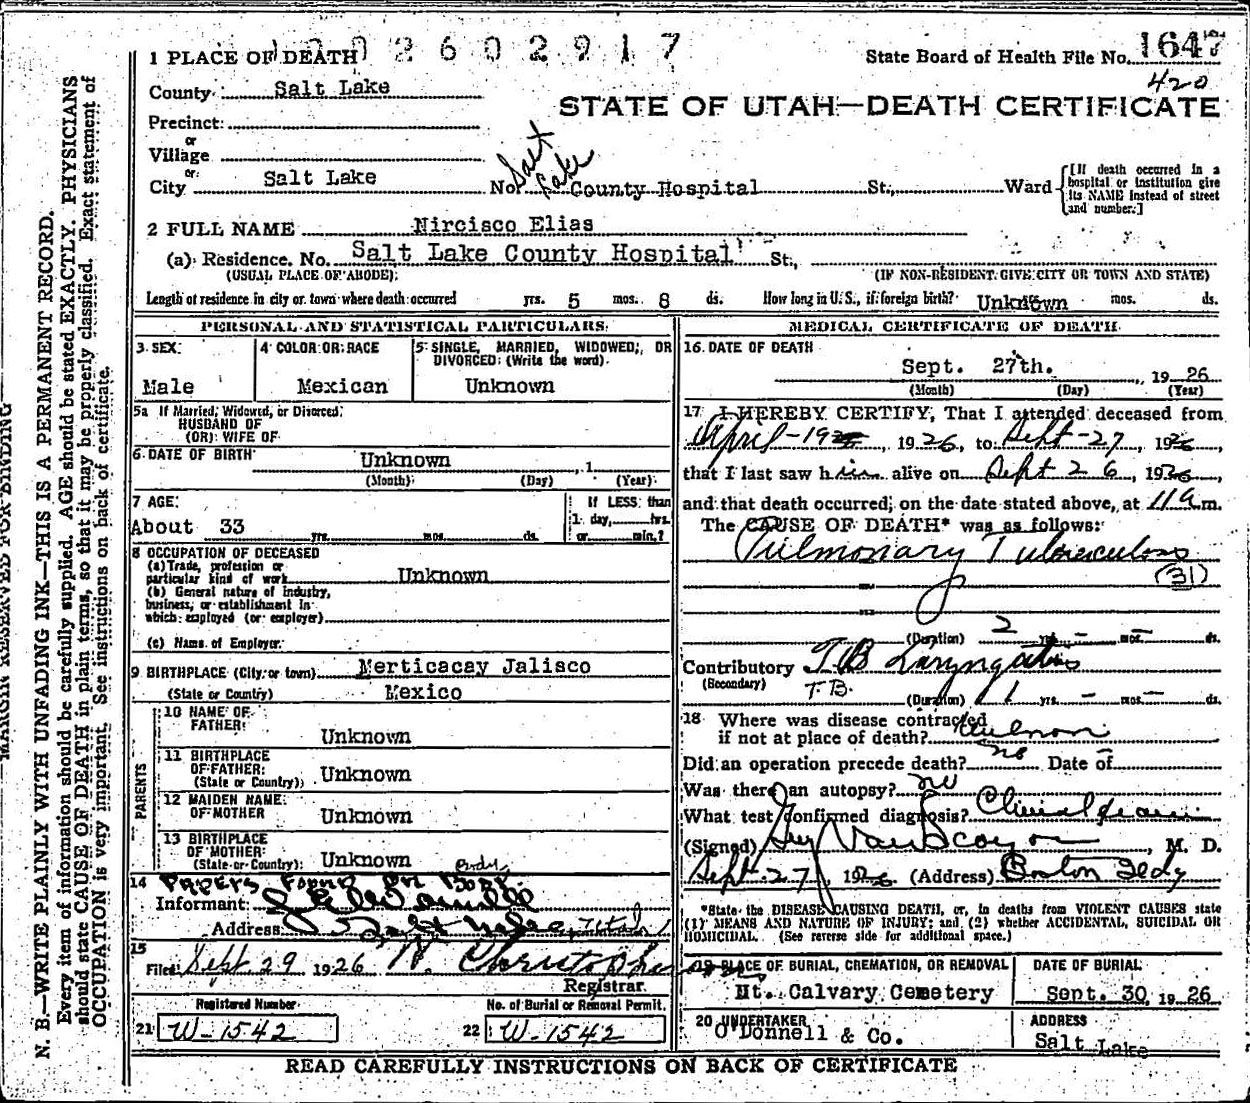 1 PLACE OF DEATH 1002602917 State Board of Health File No. 1647
420
County: Salt Lake
STATE OF UTAH—DEATH CERTIFICATE
Precinct:
or
Village
or
City Salt Lake No. Salt Lake County Hospital St., Ward
[If death occurred in a hospital or institution give its NAME instead of street and number.]
2 FULL NAME Nircisco Elias
(a) Residence. No. Salt Lake County Hospital St.,
(USUAL PLACE OF ABODE) (IF NON-RESIDENT GIVE CITY OR TOWN AND STATE)
Length of residence in city or town where death occurred yrs. 5 mos. 8 ds. How long in U. S., if foreign birth? Unknown mos. ds.
PERSONAL AND STATISTICAL PARTICULARS.
3 SEX: 4 COLOR OR RACE 5 SINGLE, MARRIED, WIDOWED, OR DIVORCED: (Write the word).
Male Mexican Unknown
5a If Married, Widowed, or Divorced:
HUSBAND OF
(OR) WIFE OF
6 DATE OF BIRTH Unknown , 1
(Month) (Day) (Year)
7 AGE: If LESS than
About 33 1 day, hrs.
yrs. mos. ds. or min.?
8 OCCUPATION OF DECEASED
(a) Trade, profession or
particular kind of work Unknown
(b) General nature of Industry,
business, or establishment in
which employed (or employer)
(c) Name of Employer
9 BIRTHPLACE (City or town) Merticacay Jalisco
(State or Country) Mexico
PARENTS
10 NAME OF
FATHER: Unknown
11 BIRTHPLACE
OF FATHER:
(State or Country) Unknown
12 MAIDEN NAME
OF MOTHER Unknown
13 BIRTHPLACE
OF MOTHER
(State or Country): Unknown
14 PAPERS FOUND ON BODY. Body
Informant:
Address: Salt Lake, Utah
15
Filed: Sept. 29 1926
Registrar.
Registered Number No. of Burial or Removal Permit.
21 W-1542 22 W-1542
MEDICAL CERTIFICATE OF DEATH
16 DATE OF DEATH
Sept. 27th. , 19 26
(Month) (Day) (Year)
17 I HEREBY CERTIFY, That I attended deceased from
April-19 1926, to Sept-27, 1926
that I last saw him alive on Sept 26, 1926,
and that death occurred, on the date stated above, at 11 a m.
The CAUSE OF DEATH* was as follows:
Pulmonary Tuberculosis
(31)
(Duration) 2 yrs. - mos. - ds.
Contributory T.B. Laryngitis
(Secondary) T.B. (Duration) 1 yrs. - mos. - ds.
18 Where was disease contracted
if not at place of death? Unknown
Did an operation precede death? no Date of -
Was there an autopsy? no
What test confirmed diagnosis? Clinical
(Signed) Guy Van Scoyoc, M. D.
Sept. 27, 1926 (Address) Boston Bldg
*State the DISEASE CAUSING DEATH, or, in deaths from VIOLENT CAUSES state
(1) MEANS AND NATURE OF INJURY; and (2) whether ACCIDENTAL, SUICIDAL OR
HOMICIDAL. (See reverse side for additional space.)
19 PLACE OF BURIAL, CREMATION, OR REMOVAL DATE OF BURIAL
Mt. Calvary Cemetery Sept. 30, 19 26
20 UNDERTAKER ADDRESS
O'Donnell & Co. Salt Lake
READ CAREFULLY INSTRUCTIONS ON BACK OF CERTIFICATE
MARGIN RESERVED FOR BINDING
N. B.—WRITE PLAINLY WITH UNFADING INK—THIS IS A PERMANENT RECORD.
Every item of information should be carefully supplied. AGE should be stated EXACTLY. PHYSICIANS
should state CAUSE OF DEATH in plain terms, so that it may be properly classified. Exact statement of
OCCUPATION is very important. See instructions on back of certificate.